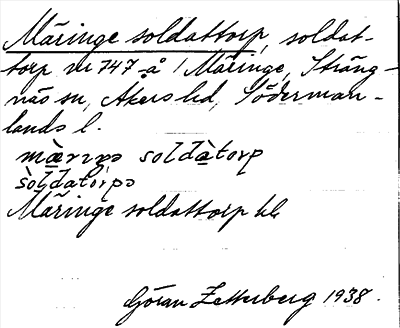 Märinge soldattorp, soldat-
torp nr 747 å 1 Märinge, Sträng-
näs sn, Åkers hd, Söderman-
lands l.
mæ̀riŋə soldàtorp
sòldatorpə
Märinge soldattorp hl
Göran Zetterberg 1938.